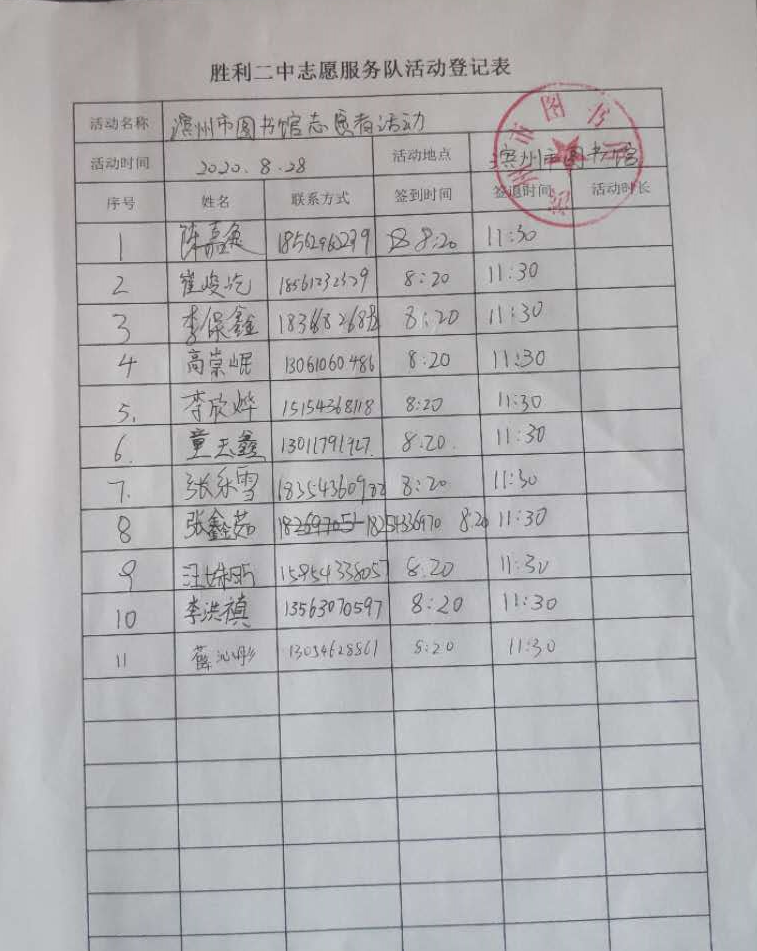 胜利二中志愿服务队活动登记表
活动名称 滨州市图书馆志愿者活动
活动时间 2020.8.28 活动地点 滨州市图书馆
序号 姓名 联系方式 签到时间 签退时间 活动时长
1 陈嘉奂 18562960239 8:20 11:30
2 崔峻屹 18561232529 8:20 11:30
3 李保鑫 8:20 11:30
4 高崇岷 13061060486 8:20 11:30
5. 李欣烨 15154368118 8:20 11:30
6. 童玉鑫 13011791927. 8:20. 11:30
7. 张乐雪 8:20 11:30
8 张鑫茹 18254336970 8:20 11:30
9 15954338057 8:20 11:30
10 李洪禛 13563070597 8:20 11:30
11 薛沁彤 13054628561 8:20 11:30